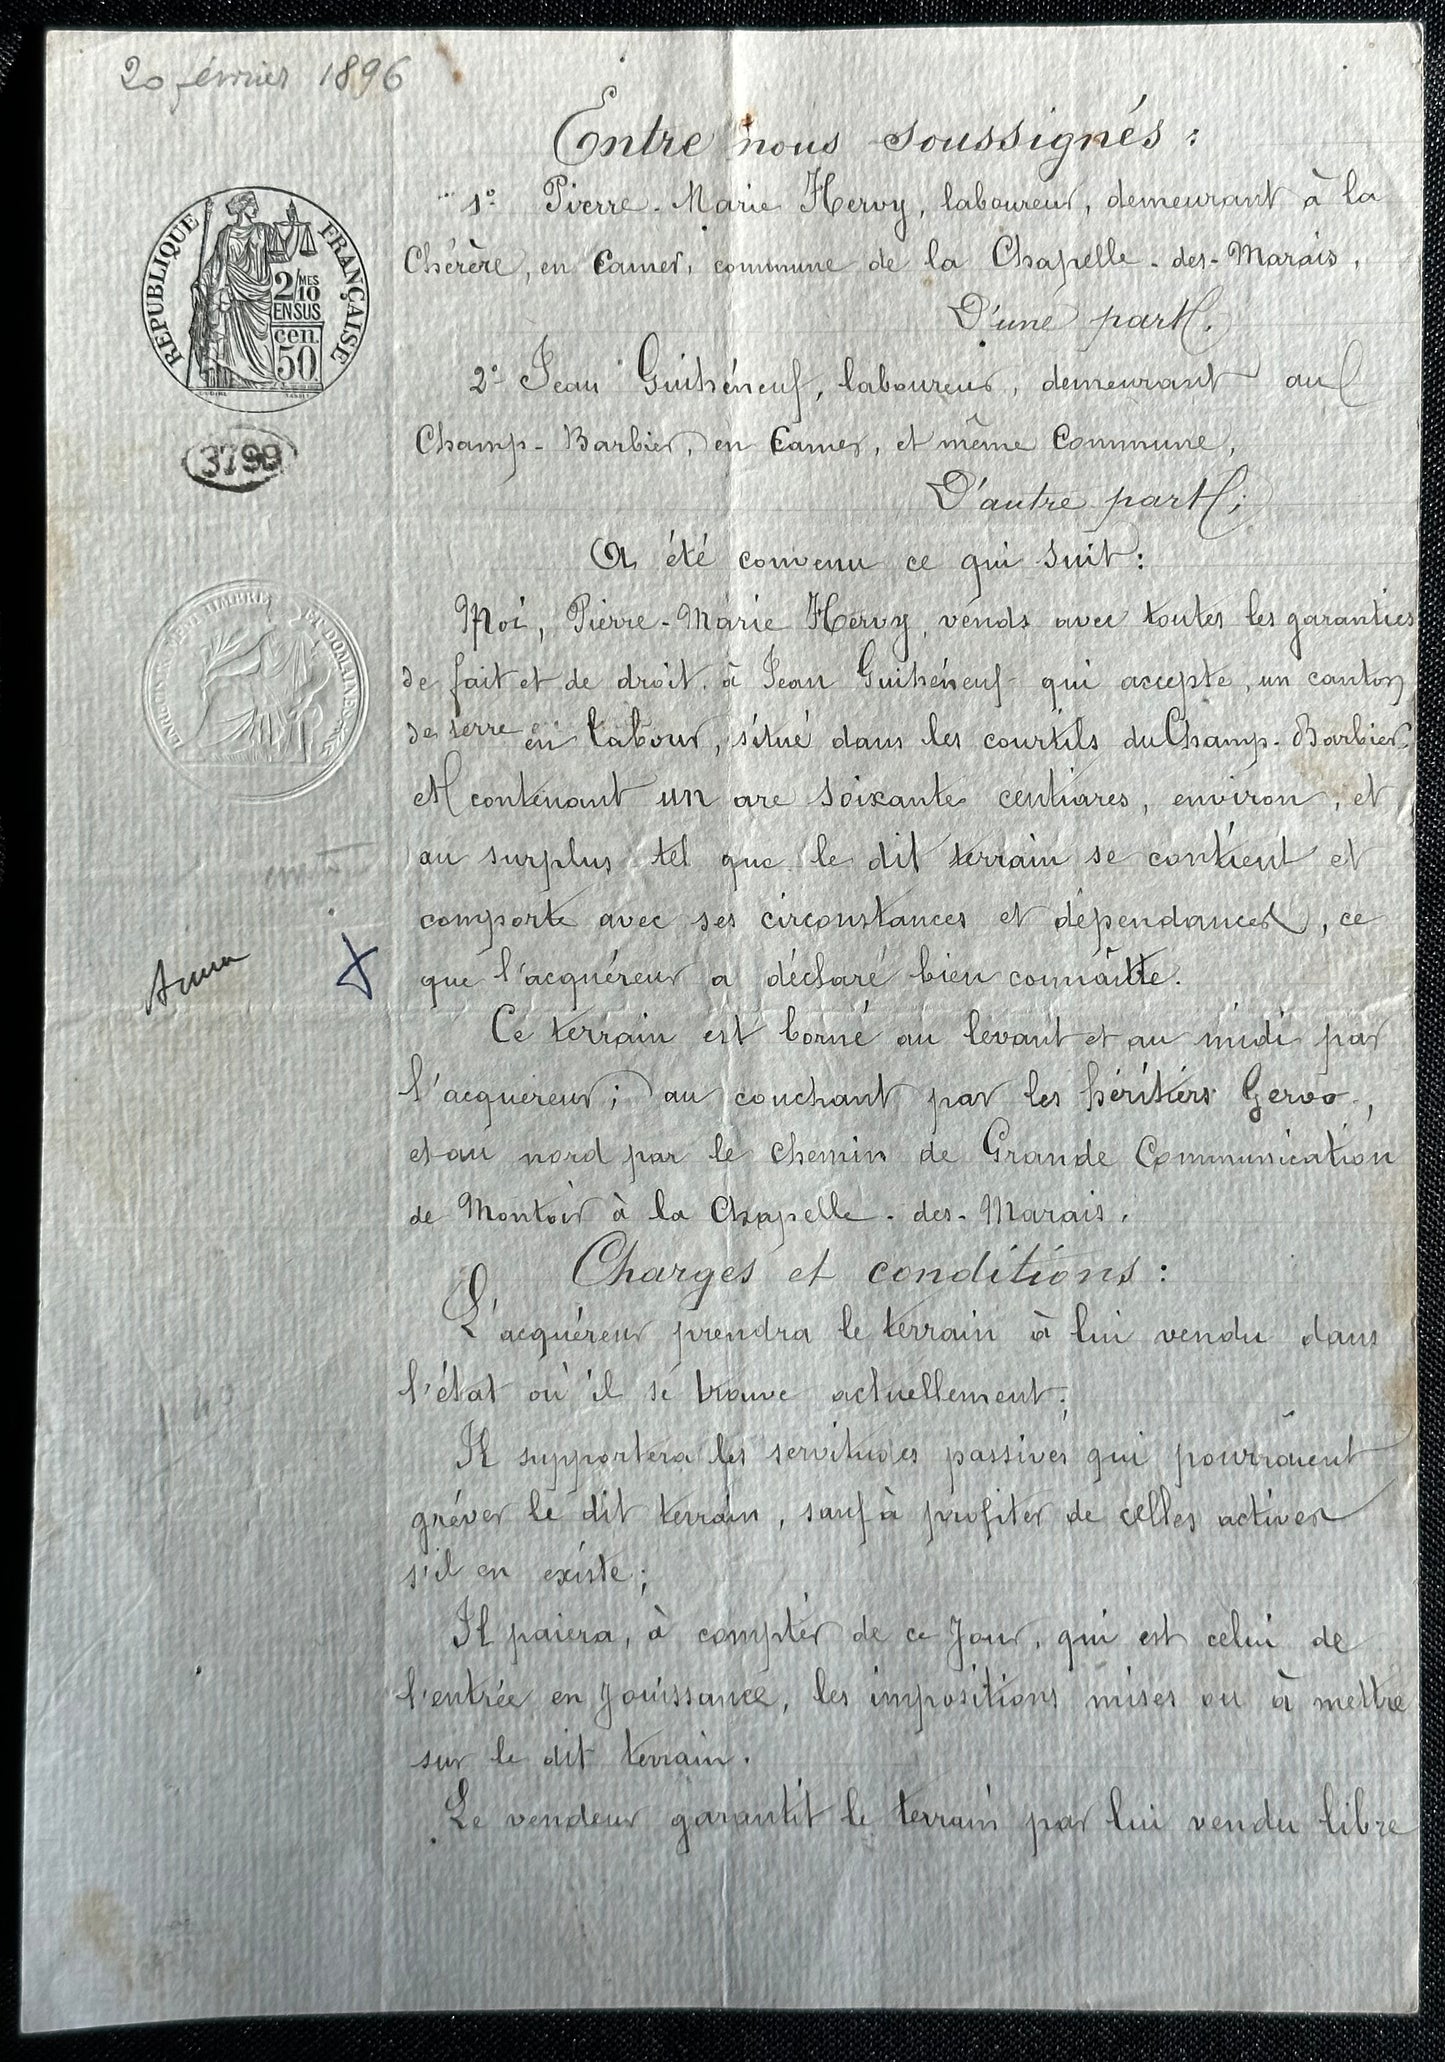 20 février 1896
Entre nous soussignés :
1º Pierre-Marie Hervy, laboureur, demeurant à la
Chérère, en Camer, commune de la Chapelle-des-Marais,
D'une part.
2º Jean Guihéneuf, laboureur, demeurant au
Champ-Barbier, en Camer, et même Commune,
D'autre part;
A été convenu ce qui suit :
Moi, Pierre-Marie Hervy, vends avec toutes les garanties
de fait et de droit, à Jean Guihéneuf qui accepte, un canton
de terre en labour, situé dans les courtils du Champ-Barbier,
et contenant un are soixante centiares, environ, et
au surplus tel que le dit terrain se contient et
comporte avec ses circonstances et dépendances, ce
que l'acquéreur a déclaré bien connaître.
Ce terrain est borné au levant et au midi par
l'acquéreur; au couchant par les héritiers Gervo,
et au nord par le chemin de Grande Communication
de Montoir à la Chapelle-des-Marais.
Charges et conditions :
L'acquéreur prendra le terrain à lui vendu dans
l'état où il se trouve actuellement;
Il supportera les servitudes passives qui pourraient
gréver le dit terrain, sauf à profiter de celles actives
s'il en existe;
Il paiera, à compter de ce jour, qui est celui de
l'entrée en jouissance, les impositions mises ou à mettre
sur le dit terrain.
Le vendeur garantit le terrain par lui vendu libre
RÉPUBLIQUE FRANÇAISE
2/10 MES
EN SUS
cen.
50
3799
TIMBRE ET DOMAINES